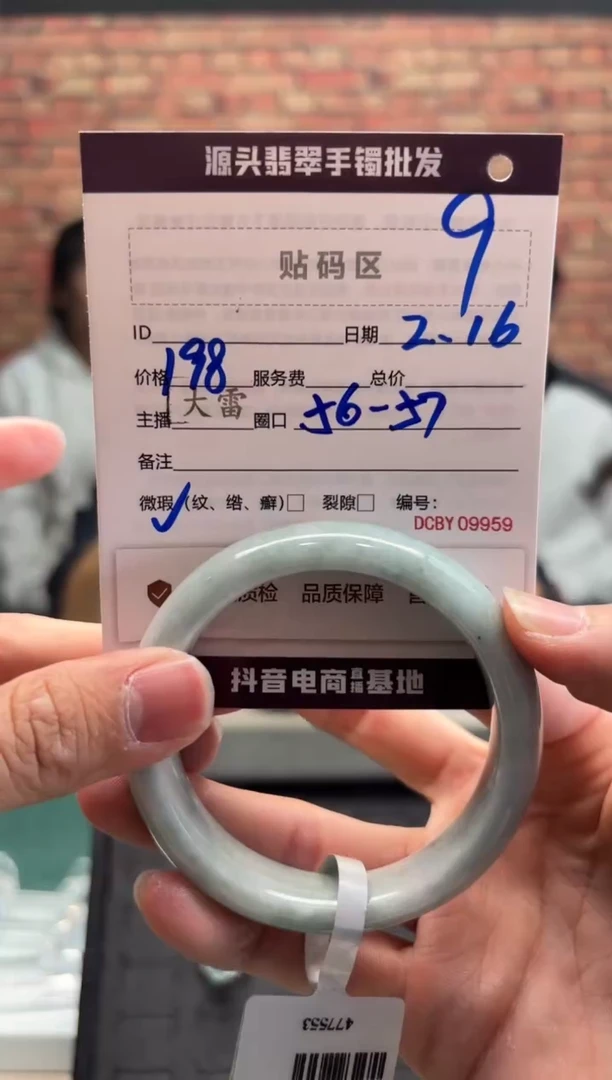 源头翡翠手镯批发
9
贴码区
ID 日期 2.16
价格 198 服务费 总价
主播 大雷 圈口 56-57
备注
微瑕✓(纹、绺、癣)□ 裂隙□ 编号:
DCBY 09959
质检 品质保障
抖音电商直播基地
477553